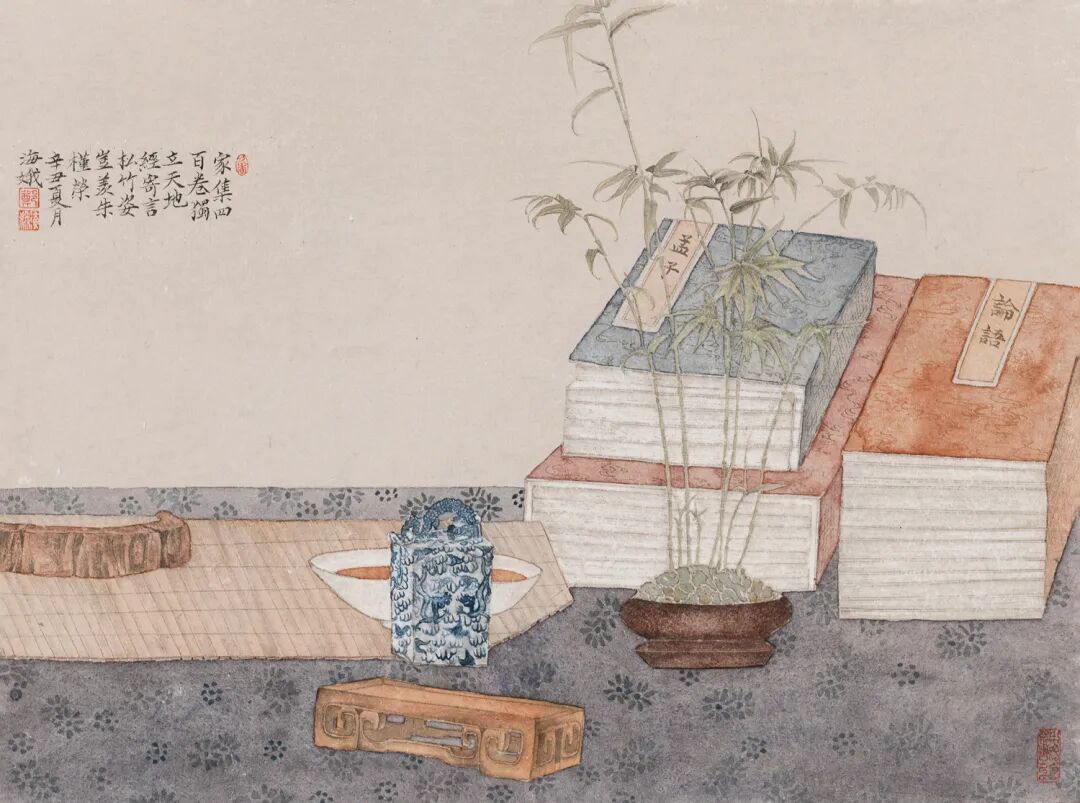 家集四
百卷獨
立天地
經寄言
松竹姿
豈羨朱
槿榮
辛丑夏月
海娥
孟子
論語